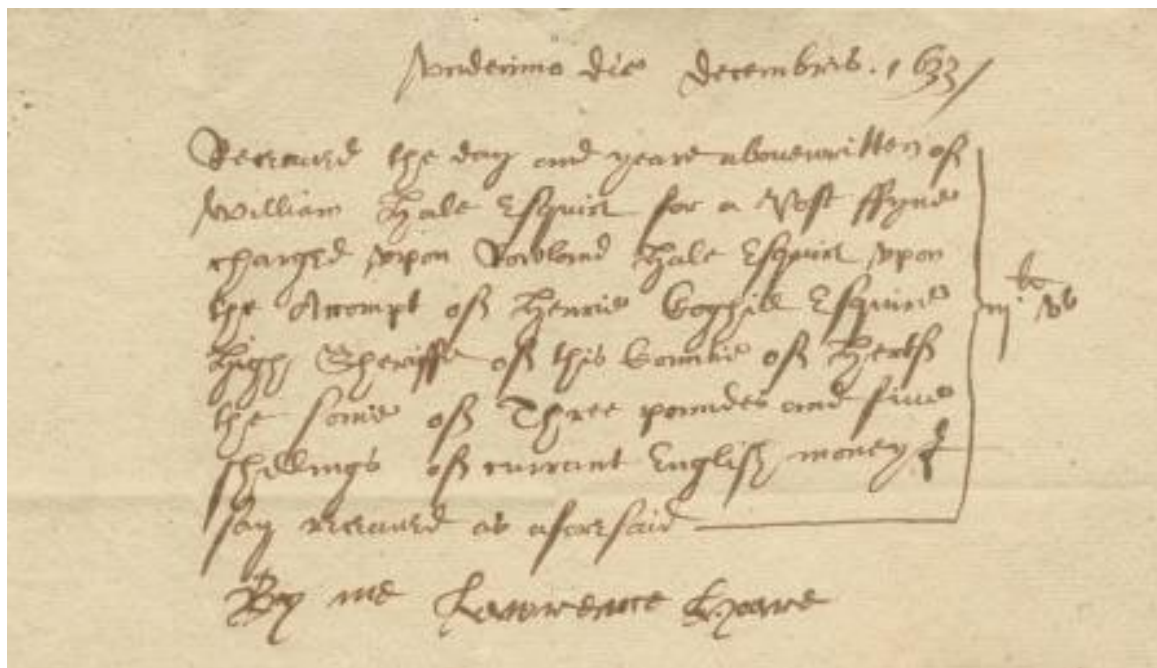 Vndecimo die Decembris. 1633/
Receaued the day and yeare abovewritten of
William Hale Esquire for a Post ffyne
charged vpon Rowland Hale Esquire vpon
the Accompt of Henrie Coghill Esquire
High Sheriffe of this Countie of Hertf
the some of Three poundes and fiue
shillings of currant English money I
say receaued as aforesaid
iijli vs
By me Lawrence Hoare